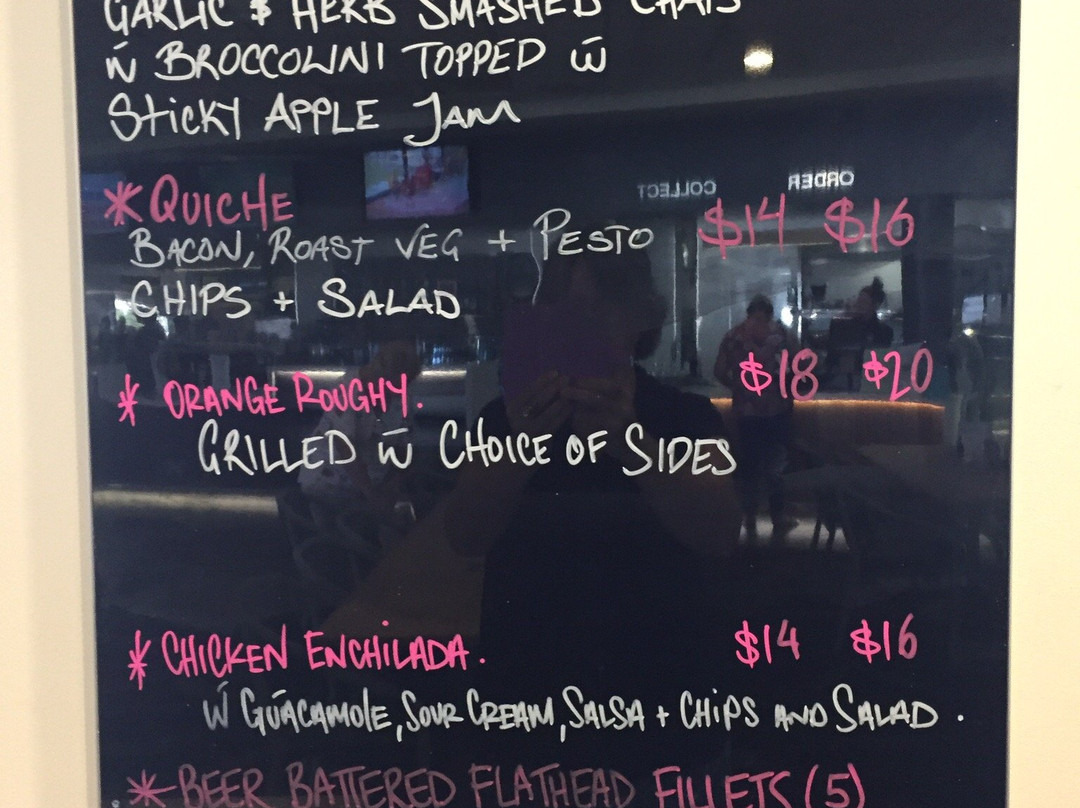 GARLIC & HERB SMASHED CHATS
W̄ BROCCOLINI TOPPED W̄
STICKY APPLE JAM
* QUICHE
$14 $16
BACON, ROAST VEG + PESTO
CHIPS + SALAD
* ORANGE ROUGHY. $18 $20
GRILLED W̄ CHOICE OF SIDES
* CHICKEN ENCHILADA. $14 $16
W̄ GUACAMOLE, SOUR CREAM, SALSA + CHIPS AND SALAD.
* BEER BATTERED FLATHEAD FILLETS (5)
COLLECT
ORDER